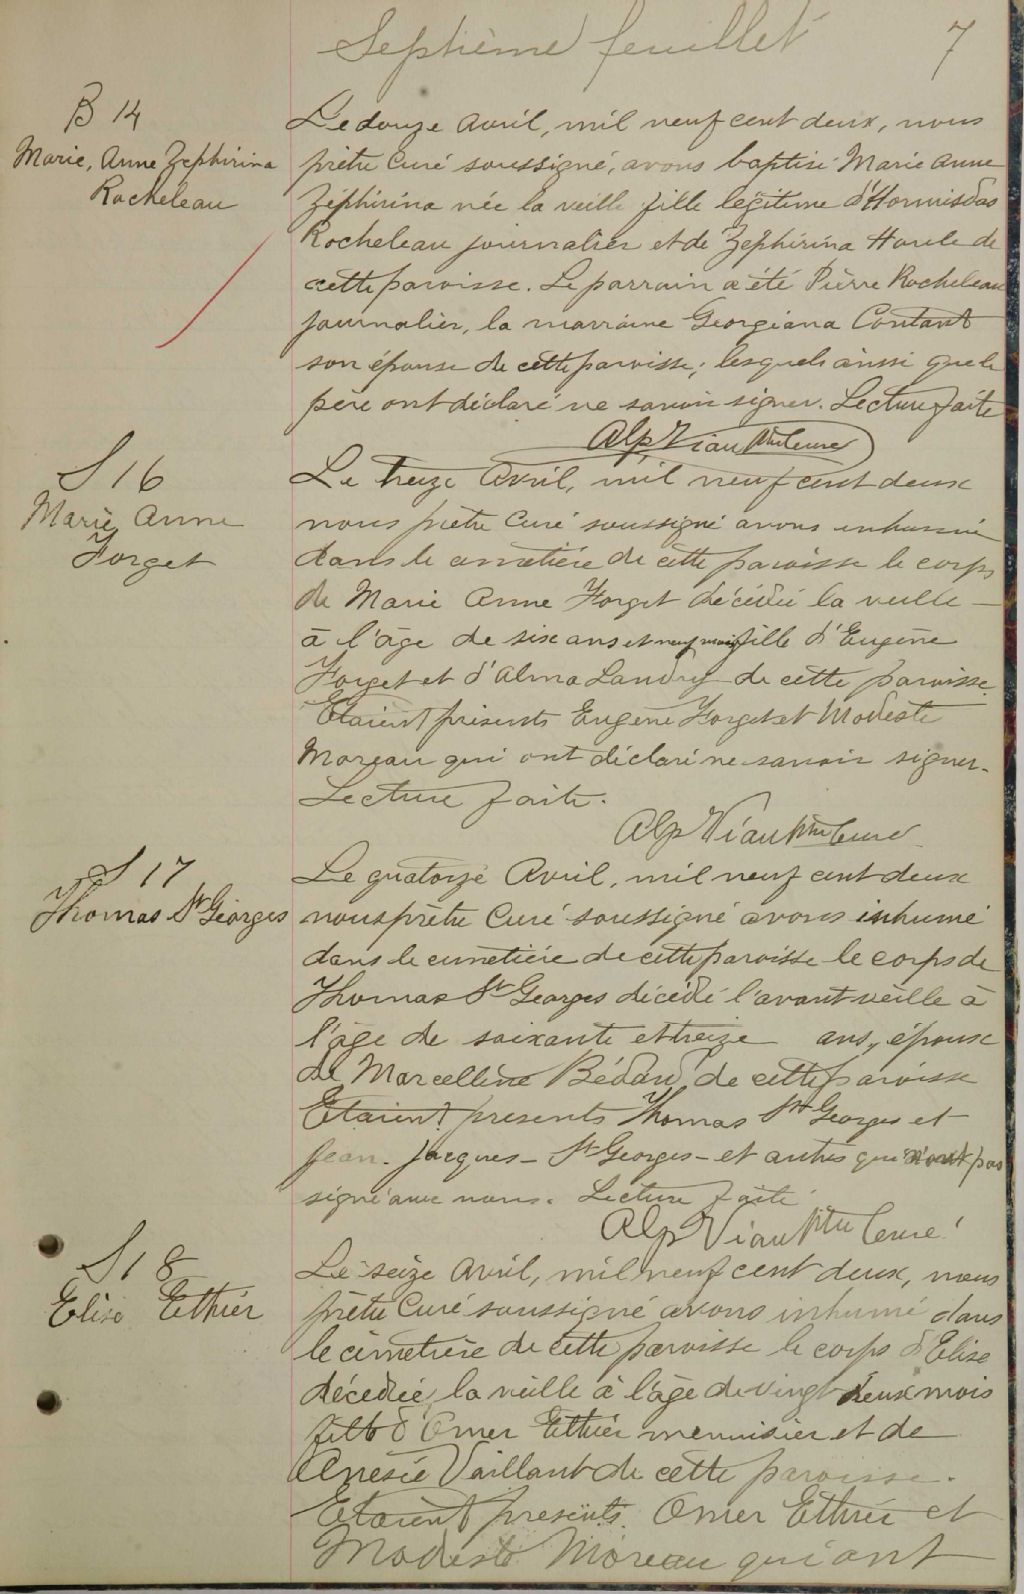 Septième feuillet 7
B 14
Marie, Anne Zéphirina
Rocheleau
Le douze Avril, mil neuf cent deux, nous
prêtre Curé soussigné, avons baptisé Marie Anne
Zéphirina née la veille fille légitime d'Hormisdas
Rocheleau journalier et de Zéphirina Houle de
cette paroisse. Le parrain a été Pierre Rocheleau
journalier, la marraine Georgiana Contant
son épouse de cette paroisse; lesquels ainsi que le
père ont déclaré ne savoir signer. Lecture faite
Alp Viau Ptre Curé
S 16
Marie Anne
Forget
Le treize Avril, mil neuf cent deux
nous prêtre Curé soussigné avons inhumé
dans le cimetière de cette paroisse le corps
de Marie Anne Forget décédée la veille
à l'âge de six ans et neuf mois fille d'Eugène
Forget et d'Alma Landry de cette paroisse.
Etaient présents Eugène Forget et Modeste
Moreau qui ont déclaré ne savoir signer.
Lecture faite.
Alp Viau Ptre Curé
S 17
Thomas St Georges
Le quatorze Avril, mil neuf cent deux
nous prêtre Curé soussigné avons inhumé
dans le cimetière de cette paroisse le corps de
Thomas St Georges décédé l'avant veille à
l'âge de soixante et treize ans, époux
de Marcelline Bédard de cette paroisse
Etaient présents Thomas St Georges et
Jean-Jacques - St Georges - et autres qui n'ont pas
signé avec nous. Lecture faite
Alp Viau Ptre Curé
S 18
Elise Ethier
Le seize Avril, mil neuf cent deux, nous
prêtre Curé soussigné avons inhumé dans
le cimetière de cette paroisse le corps d'Elise
décédée, la veille à l'âge de vingt deux mois
fille d'Omer Ethier menuisier et de
Anésie Vaillant de cette paroisse.
Etaient présents. Omer Ethier et
Modeste Moreau qui ont